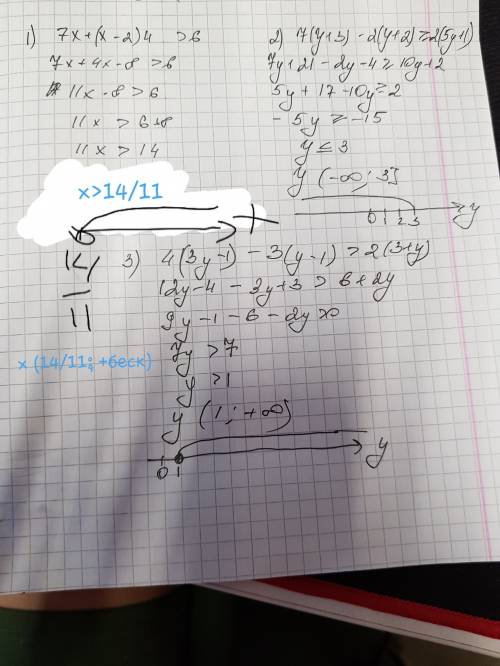 1) 7x+(x-2)4 >6
7x+4x-8>6
11x-8>6
11x > 6+8
11x > 14
x>14/11
14/11
x (14/11; +беск)
2) 7(y+3)-2(y+2)≥2(5y+1)
7y+21-2y-4≥10y+2
5y+17-10y≥2
-5y ≥ -15
y ≤ 3
y (-∞; 3]
0 1 2 3 y
3) 4(3y-1)-3(y-1)>2(3+y)
12y-4-3y+3>6+2y
9y-1-6-2y>0
7y >7
y >1
y (1; +∞)
0 1 y